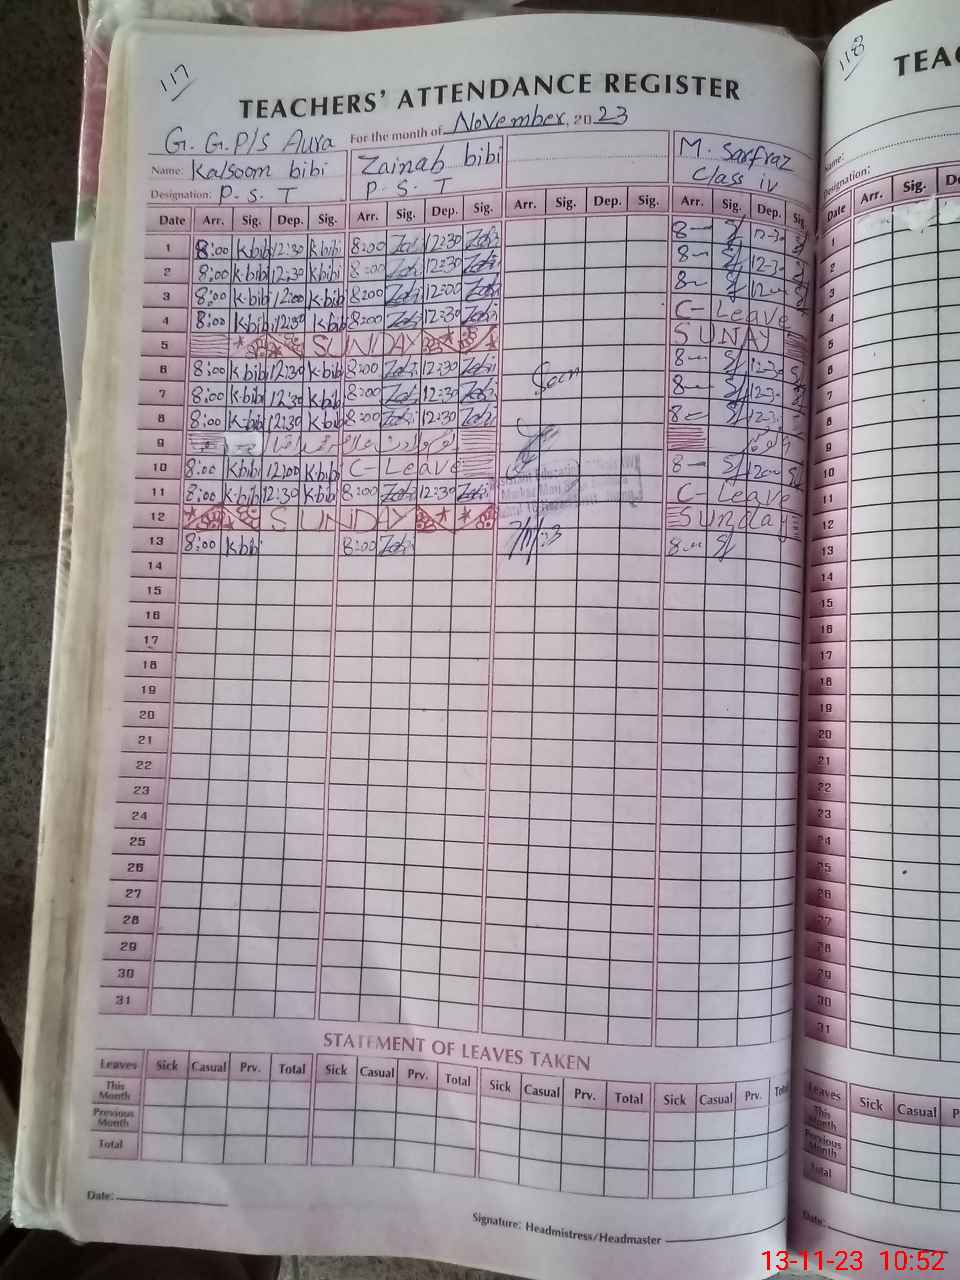 117
TEACHERS' ATTENDANCE REGISTER
G. G.P/S Aura For the month of November, 2023
Name: Kalsoom bibi Zainab bibi M. Sarfraz
Designation: P.S.T P.S.T Class iv
Date Arr. Sig. Dep. Sig. Arr. Sig. Dep. Sig. Arr. Sig. Dep. Sig. Arr. Sig. Dep. Sig.
1 8:00 k.bibi 12:30 k.bibi 8:00 12:30 8 12-30
2 8:00 k.bibi 12:30 k.bibi 8:00 12:30 8 12-30
3 8:00 k.bibi 12:00 k.bibi 8:00 12:00 8 12
4 8:00 k.bibi 12:30 k.bibi 8:00 12:30 C-Leave
5 SUNDAY SUNDAY
6 8:00 k.bibi 12:30 k.bibi 8:00 12:30 8 12-30
7 8:00 k.bibi 12:30 k.bibi 8:00 12:30 8 12-30
8 8:00 k.bibi 12:30 k.bibi 8:00 12:30 8 12-30
9
10 8:00 k.bibi 12:00 k.bibi C-Leave 8 12
11 8:00 k.bibi 12:30 k.bibi 8:00 12:30 C-Leave
12 SUNDAY Sunday
13 8:00 k.bibi 8:00 8
14
15
16
17
18
19
20
21
22
23
24
25
26
27
28
29
30
31
STATEMENT OF LEAVES TAKEN
Leaves Sick Casual Prv. Total Sick Casual Prv. Total Sick Casual Prv. Total Sick Casual Prv. Total
This Month
Previous Month
Total
Date:
Signature: Headmistress/Headmaster
118
TEAC
Name:
Designation:
Date Arr. Sig. De
1
2
3
4
5
6
7
8
9
10
11
12
13
14
15
16
17
18
19
20
21
22
23
24
25
26
27
28
29
30
31
Leaves Sick Casual P
This Month
Previous Month
Total
Date:
13-11-23 10:52